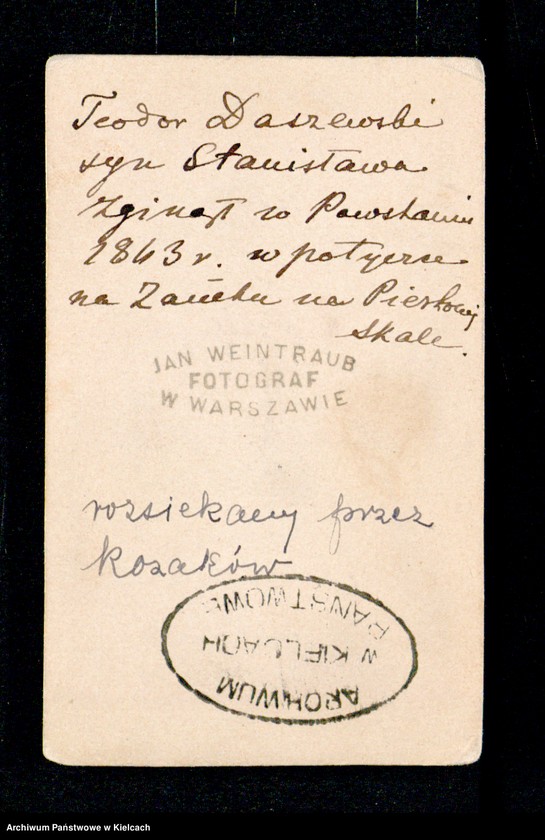 Teodor Daszewski
syn Stanisława
Zginął w Powstaniu
1863 r. w potyczce
na Zamku na Pieskowej
Skale.
JAN WEINTRAUB
FOTOGRAF
W WARSZAWIE
rozsiekany przez
kozaków
ARCHIWUM
PAŃSTWOWE
W KIELCACH
Archiwum Państwowe w Kielcach